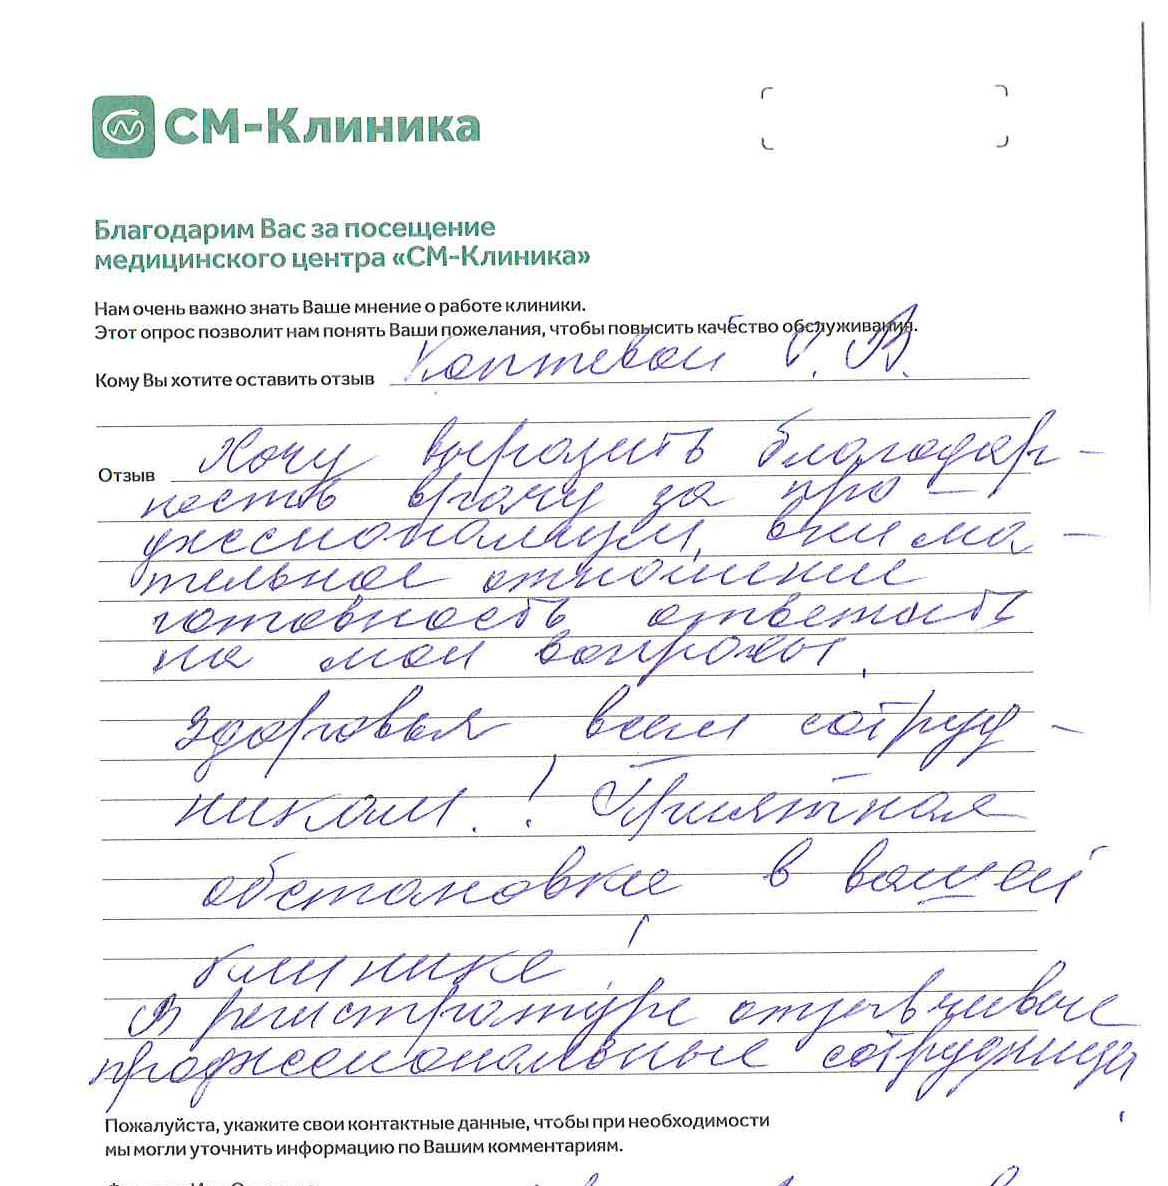 СМ-Клиника
Благодарим Вас за посещение
медицинского центра «СМ-Клиника»
Нам очень важно знать Ваше мнение о работе клиники.
Этот опрос позволит нам понять Ваши пожелания, чтобы повысить качество обслуживания.
Кому Вы хотите оставить отзыв Коптевой Г. В.
Отзыв Хочу выразить благодар-
ность врачу за про-
фессионализм, внима-
тельное отношение
готовность ответить
на мои вопросы.
Здоровья всем сотруд-
никам! Приятная
обстановка в вашей
клинике!
В регистратуре отзывчивые
профессиональные сотрудницы
Пожалуйста, укажите свои контактные данные, чтобы при необходимости
мы могли уточнить информацию по Вашим комментариям.